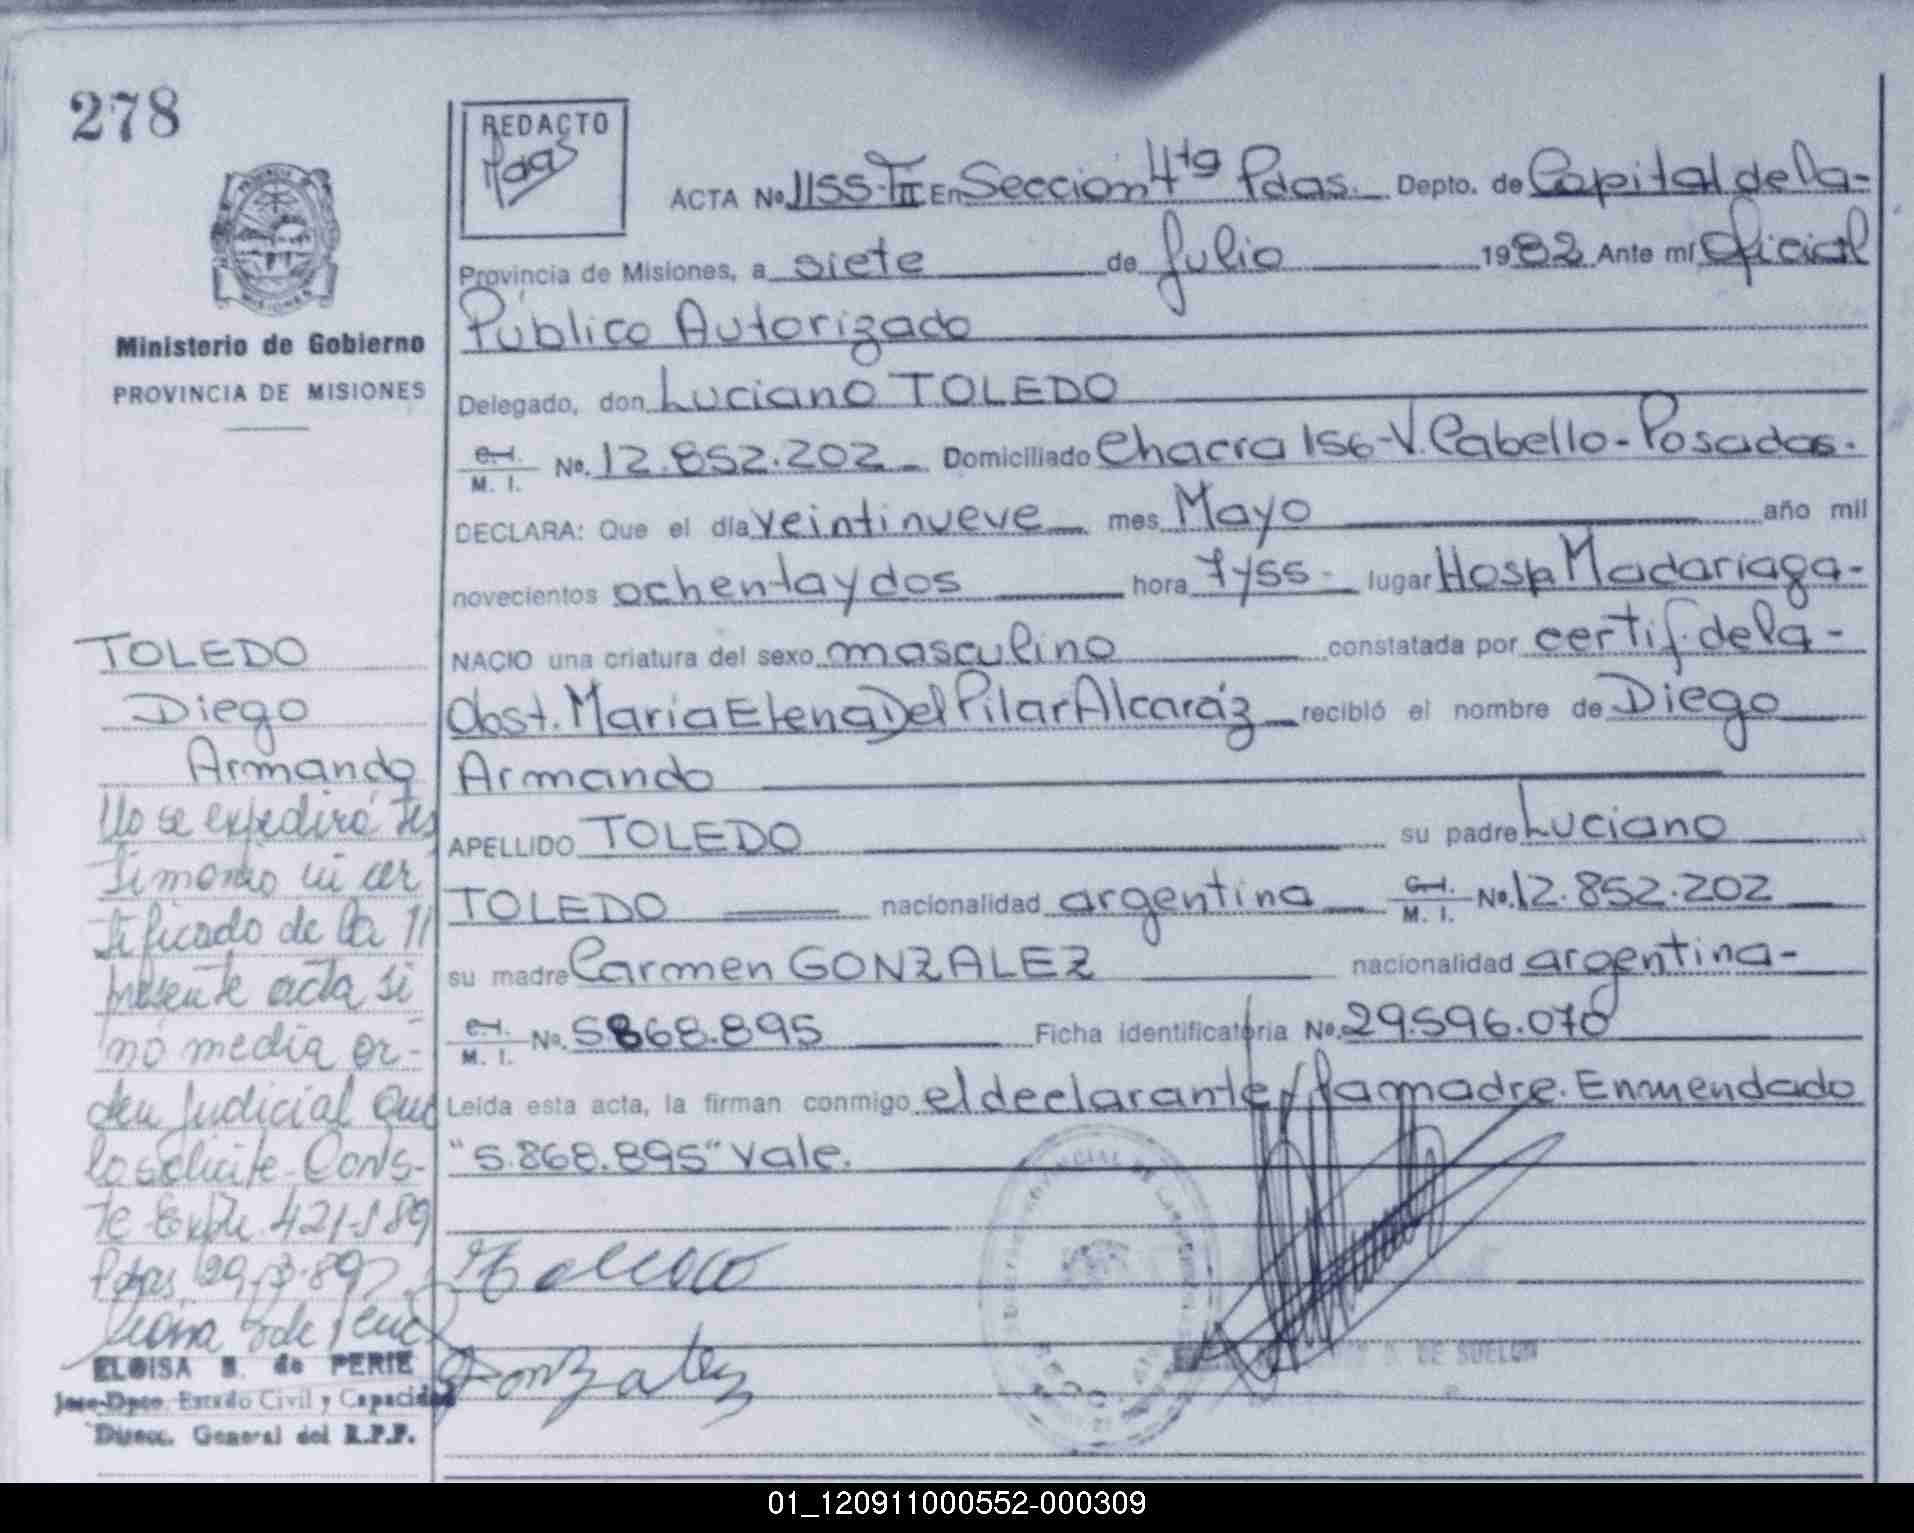 278
REDACTO
Pdas
ACTA No. 1155-TIII En Sección 4ta Pdas. Depto. de Capital de la-
Provincia de Misiones, a siete de Julio 1982 Ante mí Oficial
Público Autorizado
Ministerio de Gobierno
PROVINCIA DE MISIONES
Delegado, don Luciano TOLEDO
C.I.
M. I. No. 12.852.202 Domiciliado Chacra 156-V. Cabello-Posadas.
DECLARA: Que el día veintinueve mes Mayo año mil
novecientos ochenta y dos hora 7 y 55- lugar Hosp. Madariaga-
NACIO una criatura del sexo masculino constatada por certif. de la-
obst. María Elena Del Pilar Alcaráz recibió el nombre de Diego
Armando
APELLIDO TOLEDO su padre Luciano
TOLEDO nacionalidad argentina C.I. M. I. No. 12.852.202
su madre Carmen GONZALEZ nacionalidad argentina-
C.I. M. I. No. 5868.895 Ficha identificatoria No. 29.596.070
Leída esta acta, la firman conmigo el declarante y la madre. Enmendado
"5.868.895" Vale.
TOLEDO
Diego
Armando
No se expedirá tes
timonio ni cer
tificado de la
presente acta si
no media or-
den Judicial que
lo solicite- Cons-
te Expte. 421-J 89
Pdas, 29-3-89
ELOISA B. de PERIE
Jefe Dpto. Estado Civil y Capacidad
Direcc. General del R.P.P.
Gonzalez
DE SUELON
01_120911000552-000309